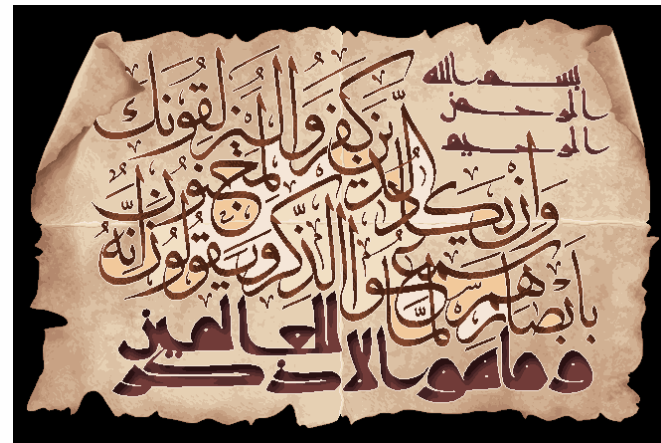 بسم الله
الرحمن
الرحيم
وَإِن يَكَادُ الَّذِينَ كَفَرُوا لَيُزْلِقُونَكَ
بِأَبْصَارِهِمْ لَمَّا سَمِعُوا الذِّكْرَ وَيَقُولُونَ إِنَّهُ لَمَجْنُونٌ
وما هو الا ذكر
للعالمين